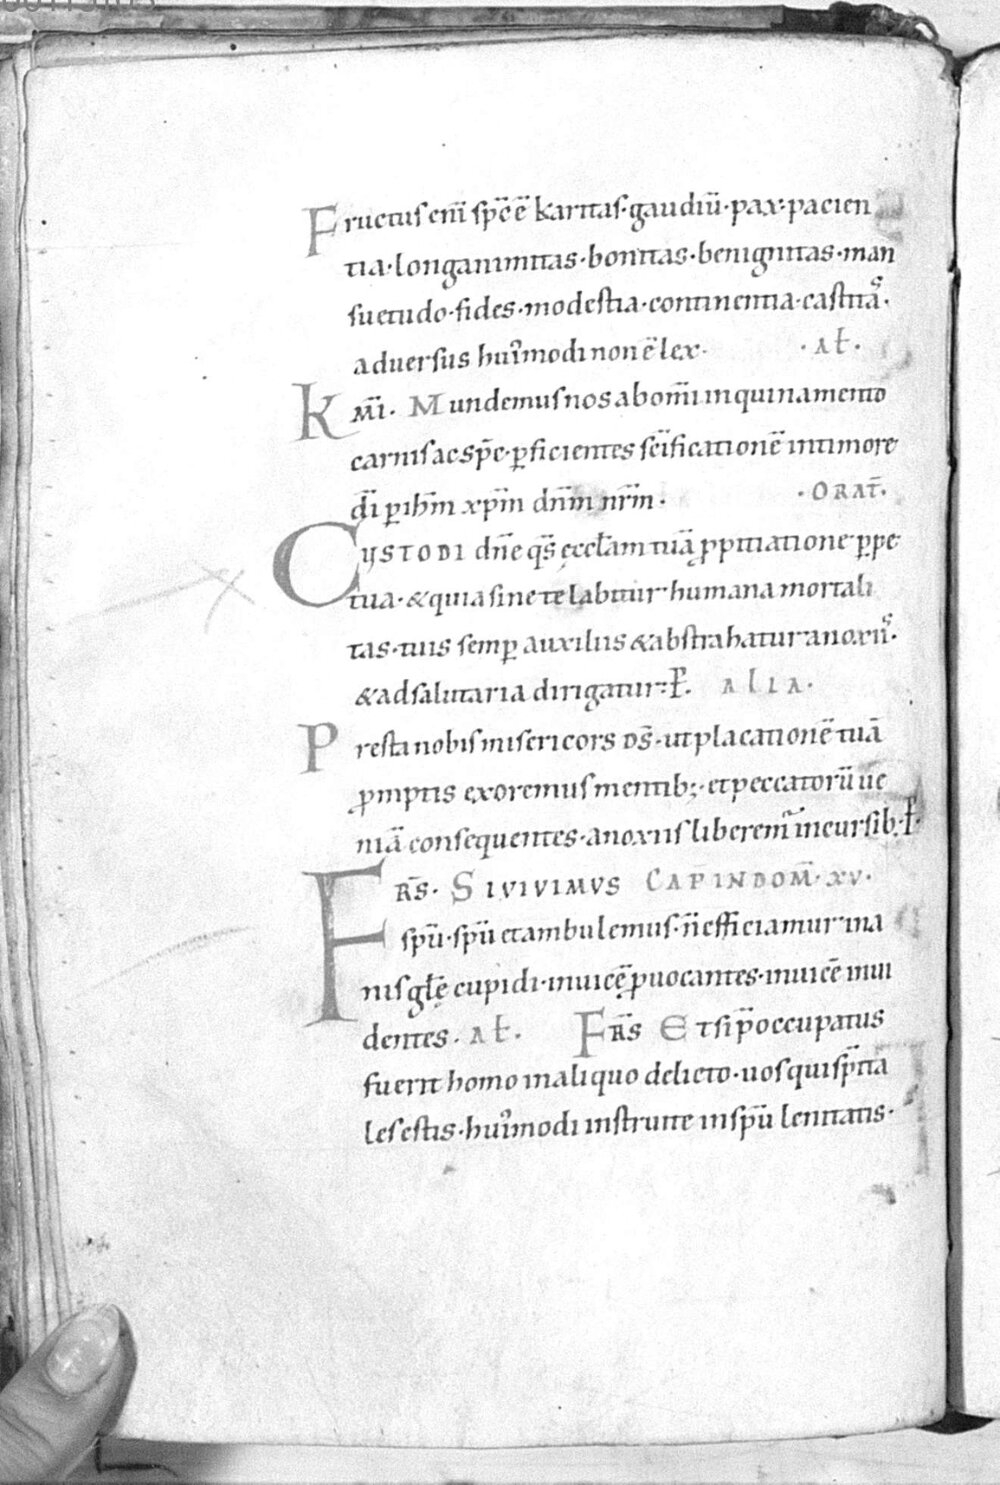 Fructus enī spc̄ ē karitas· gaudiū· pax· pacien
tia· longanimitas· bonitas· benignitas· man
suetudo· fides· modestia· continentia· castitas·
aduersus hui᷒modi non ē lex· ·AƗ·
Km̄i· Mundemus nos ab om̄i inquinamento
carnis ac spc̄· ꝑficientes sc̄ificationē in timore
dī ꝑ ihm̄ xpm̄ dn̄m nr̄m· ·ORAT̄·
CUSTODI dn̄e qs̄ ęccƚam tuā ꝓpitiatione ꝑpe
tua· & quia sine te labitur humana mortali
tas· tuis semꝑ auxiliis & abstrahatur a noxiis·
& ad salutaria dirigatur· P̄· ALIA·
Presta nobis misericors ds̄· ut placationē tuā
ꝓmptis exoremus mentib;· et peccatorū ue
niā consequentes· a noxiis liberem᷒ incursib;· P̄·
FRS̄· SI VIVIMVS CAP̄ IN DOM̄· XV·
spū· spū et ambulemus· n̄ efficiamur ina
nis gƚę cupidi· inuicē ꝓuocantes· inuicē inui
dentes· AƗ· FRS̄ Et si p̄occupatus
fuerit homo in aliquo delicto· uos qui sp̄ita
les estis· hui᷒modi instruite in spū lenitatis·